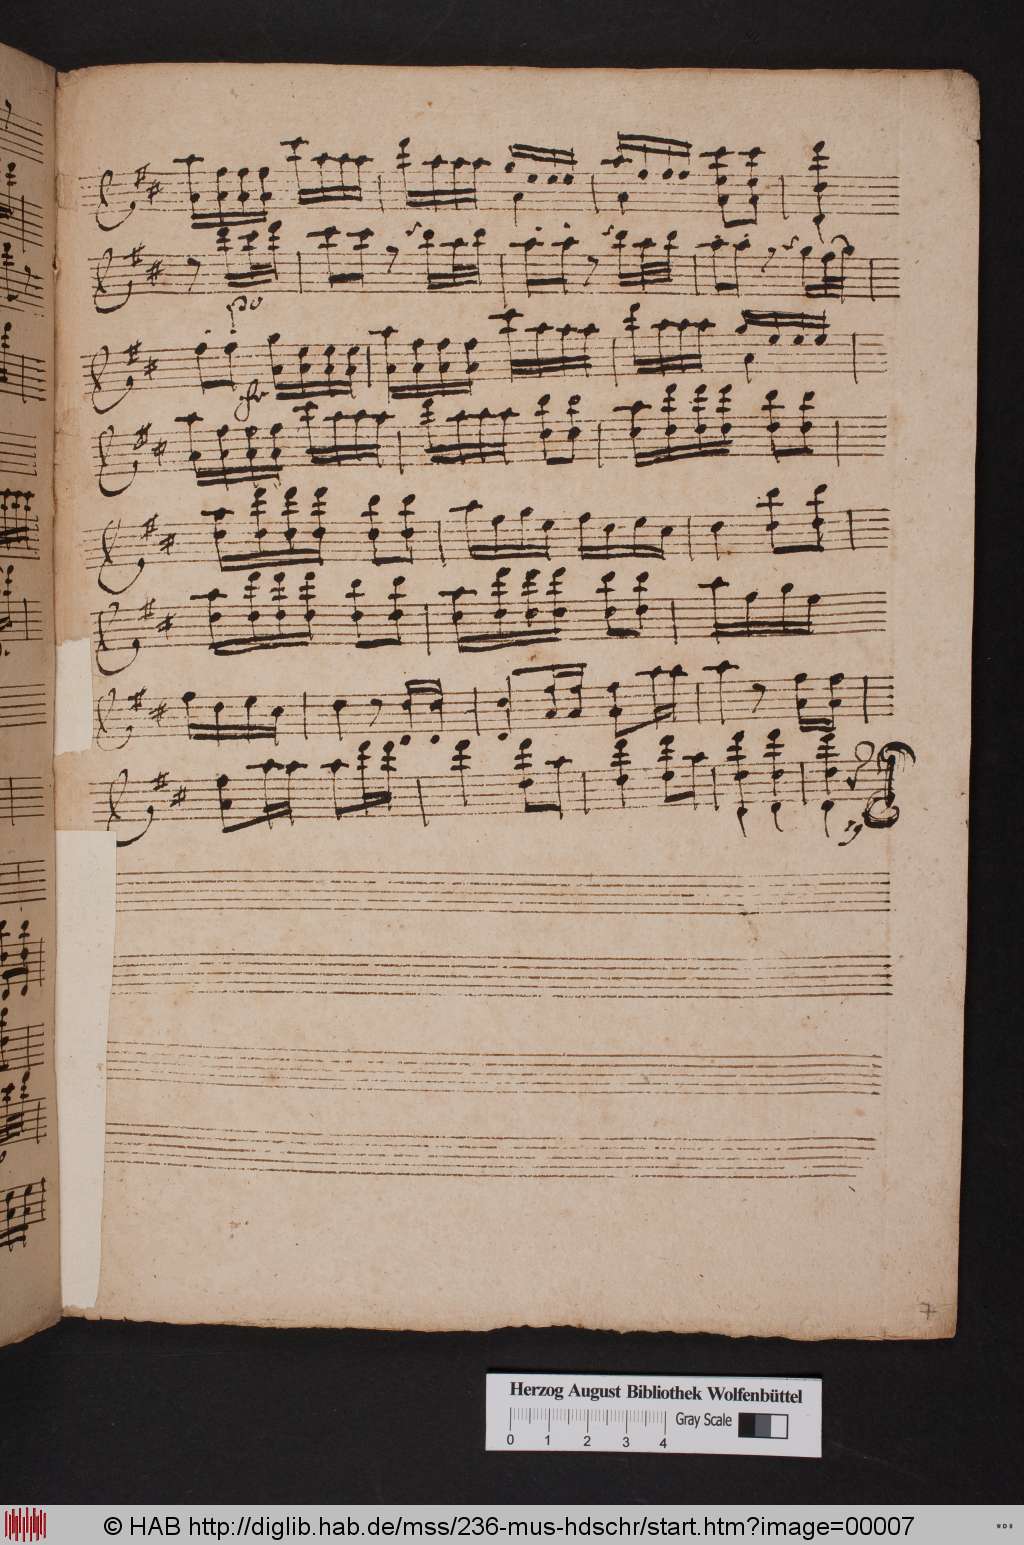 po
for
7
Herzog August Bibliothek Wolfenbüttel
Gray Scale
0 1 2 3 4
© HAB http://diglib.hab.de/mss/236-mus-hdschr/start.htm?image=00007